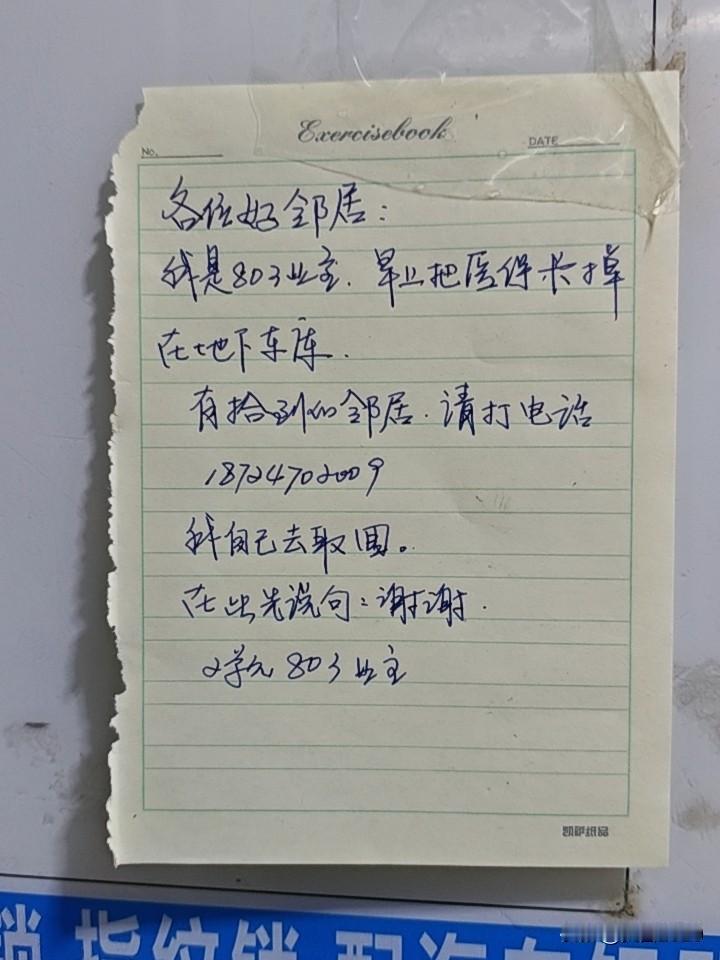 Exercisebook
No.
DATE
各位好邻居：
我是803业主．早上把医保卡掉
在地下车库．
有拾到的邻居．请打电话
18724702009
我自己去取回。
在此先说句：谢谢．
2单元803业主
指纹锁